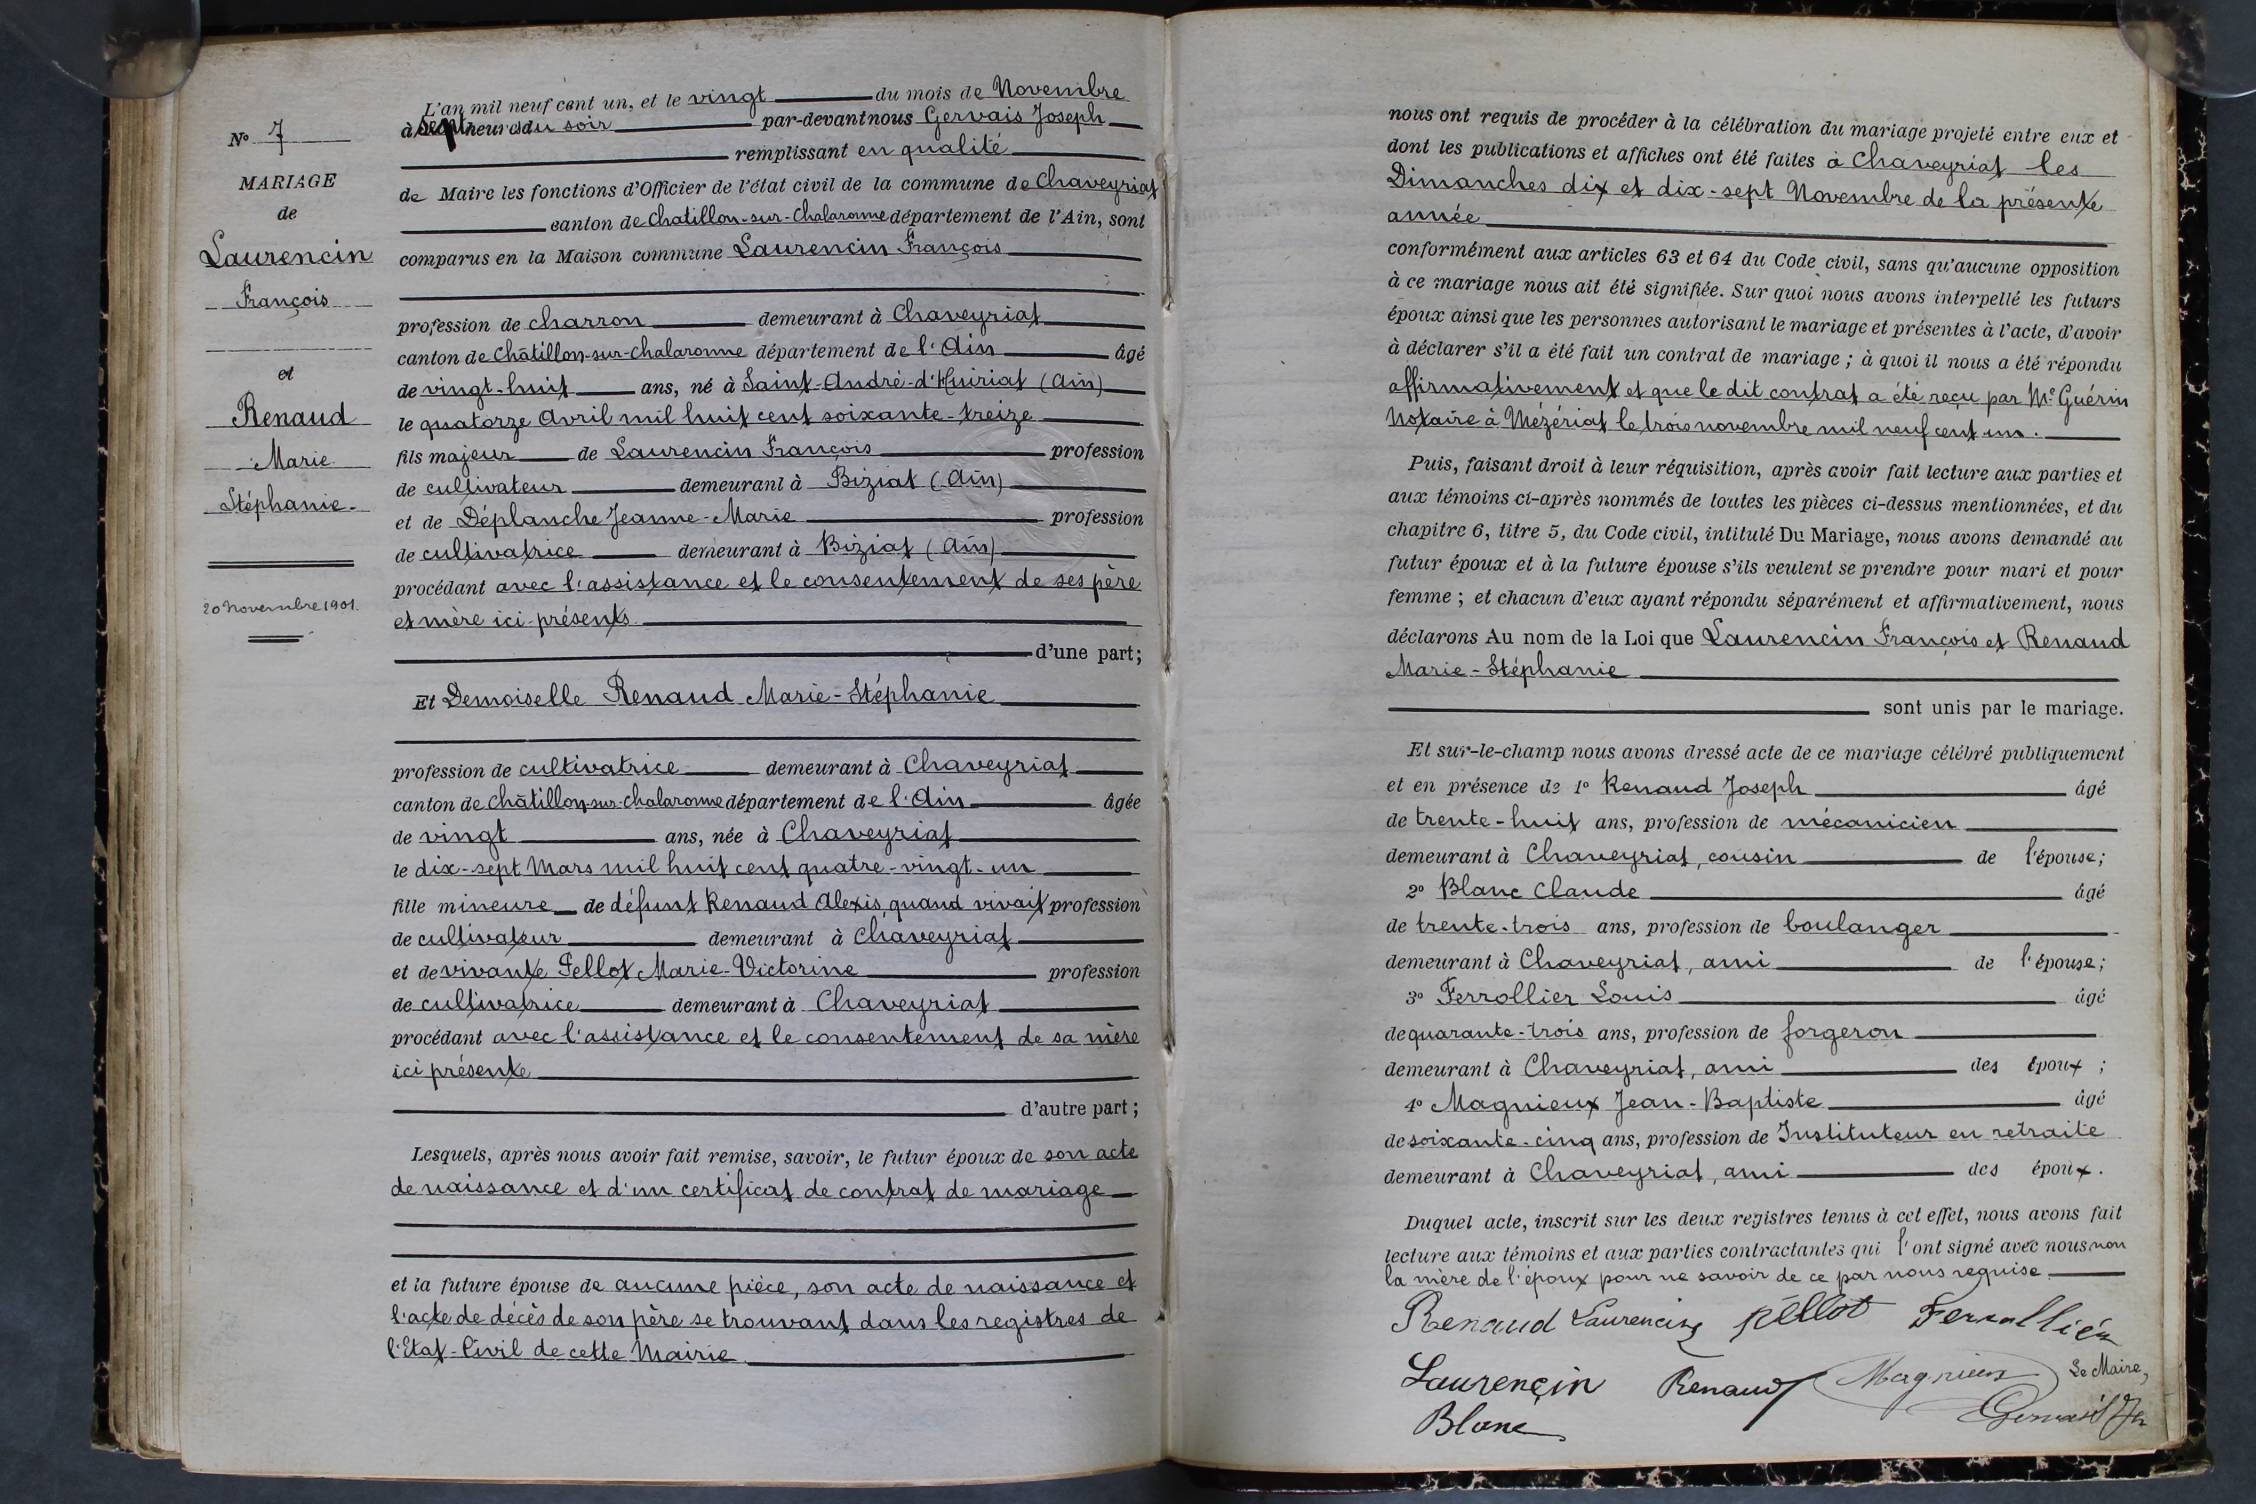 N° 7
MARIAGE
de
Laurencin
François
et
Renaud
Marie
Stéphanie.
20 Novembre 1901.
L'an mil neuf cent un, et le vingt du mois de Novembre
à sept heures du soir par-devant nous Gervais Joseph
remplissant en qualité
de Maire les fonctions d'Officier de l'état civil de la commune de Chaveyriat
canton de Chatillon-sur-Chalaronne département de l'Ain, sont
comparus en la Maison commune Laurencin François
profession de charron demeurant à Chaveyriat
canton de Châtillon-sur-Chalaronne département de l'Ain âgé
de vingt-huit ans, né à Saint-André-d'Huiriat (Ain)
le quatorze Avril mil huit cent soixante-treize
fils majeur de Laurencin François profession
de cultivateur demeurant à Biziat (Ain)
et de Déplanche Jeanne-Marie profession
de cultivatrice demeurant à Biziat (Ain)
procédant avec l'assistance et le consentement de ses père
et mère ici présents.
d'une part;
Et Demoiselle Renaud Marie-Stéphanie
profession de cultivatrice demeurant à Chaveyriat
canton de Châtillon-sur-Chalaronne département de l'Ain âgée
de vingt ans, née à Chaveyriat
le dix-sept Mars mil huit cent quatre-vingt-un
fille mineure de défunt Renaud Alexis, quand vivait profession
de cultivateur demeurant à Chaveyriat
et de vivante Pellot Marie-Victorine profession
de cultivatrice demeurant à Chaveyriat
procédant avec l'assistance et le consentement de sa mère
ici présente
d'autre part;
Lesquels, après nous avoir fait remise, savoir, le futur époux de son acte
de naissance et d'un certificat de contrat de mariage
et la future épouse de aucune pièce, son acte de naissance et
l'acte de décès de son père se trouvant dans les registres de
l'Etat-Civil de cette Mairie.
nous ont requis de procéder à la célébration du mariage projeté entre eux et
dont les publications et affiches ont été faites à Chaveyriat les
Dimanches dix et dix-sept Novembre de la présente
année
conformément aux articles 63 et 64 du Code civil, sans qu'aucune opposition
à ce mariage nous ait été signifiée. Sur quoi nous avons interpellé les futurs
époux ainsi que les personnes autorisant le mariage et présentes à l'acte, d'avoir
à déclarer s'il a été fait un contrat de mariage; à quoi il nous a été répondu
affirmativement et que le dit contrat a été reçu par Me Guérin
Notaire à Mézériat le trois novembre mil neuf cent un.
Puis, faisant droit à leur réquisition, après avoir fait lecture aux parties et
aux témoins ci-après nommés de toutes les pièces ci-dessus mentionnées, et du
chapitre 6, titre 5, du Code civil, intitulé Du Mariage, nous avons demandé au
futur époux et à la future épouse s'ils veulent se prendre pour mari et pour
femme; et chacun d'eux ayant répondu séparément et affirmativement, nous
déclarons Au nom de la Loi que Laurencin François et Renaud
Marie-Stéphanie
sont unis par le mariage.
Et sur-le-champ nous avons dressé acte de ce mariage célébré publiquement
et en présence de 1° Renaud Joseph âgé
de trente-huit ans, profession de mécanicien
demeurant à Chaveyriat, cousin de l'épouse;
2° Blanc Claude âgé
de trente-trois ans, profession de boulanger
demeurant à Chaveyriat, ami de l'épouse;
3° Ferrollier Louis âgé
de quarante-trois ans, profession de forgeron
demeurant à Chaveyriat, ami des époux;
4° Magnieux Jean-Baptiste âgé
de soixante-cinq ans, profession de Instituteur en retraite
demeurant à Chaveyriat, ami des époux.
Duquel acte, inscrit sur les deux registres tenus à cet effet, nous avons fait
lecture aux témoins et aux parties contractantes qui l'ont signé avec nous non
la mère de l'époux pour ne savoir de ce par nous requise.
Renaud Laurencin Pellot Ferrollier
Laurençin Renaud Magnieux Le Maire,
Blanc Gervais Jh